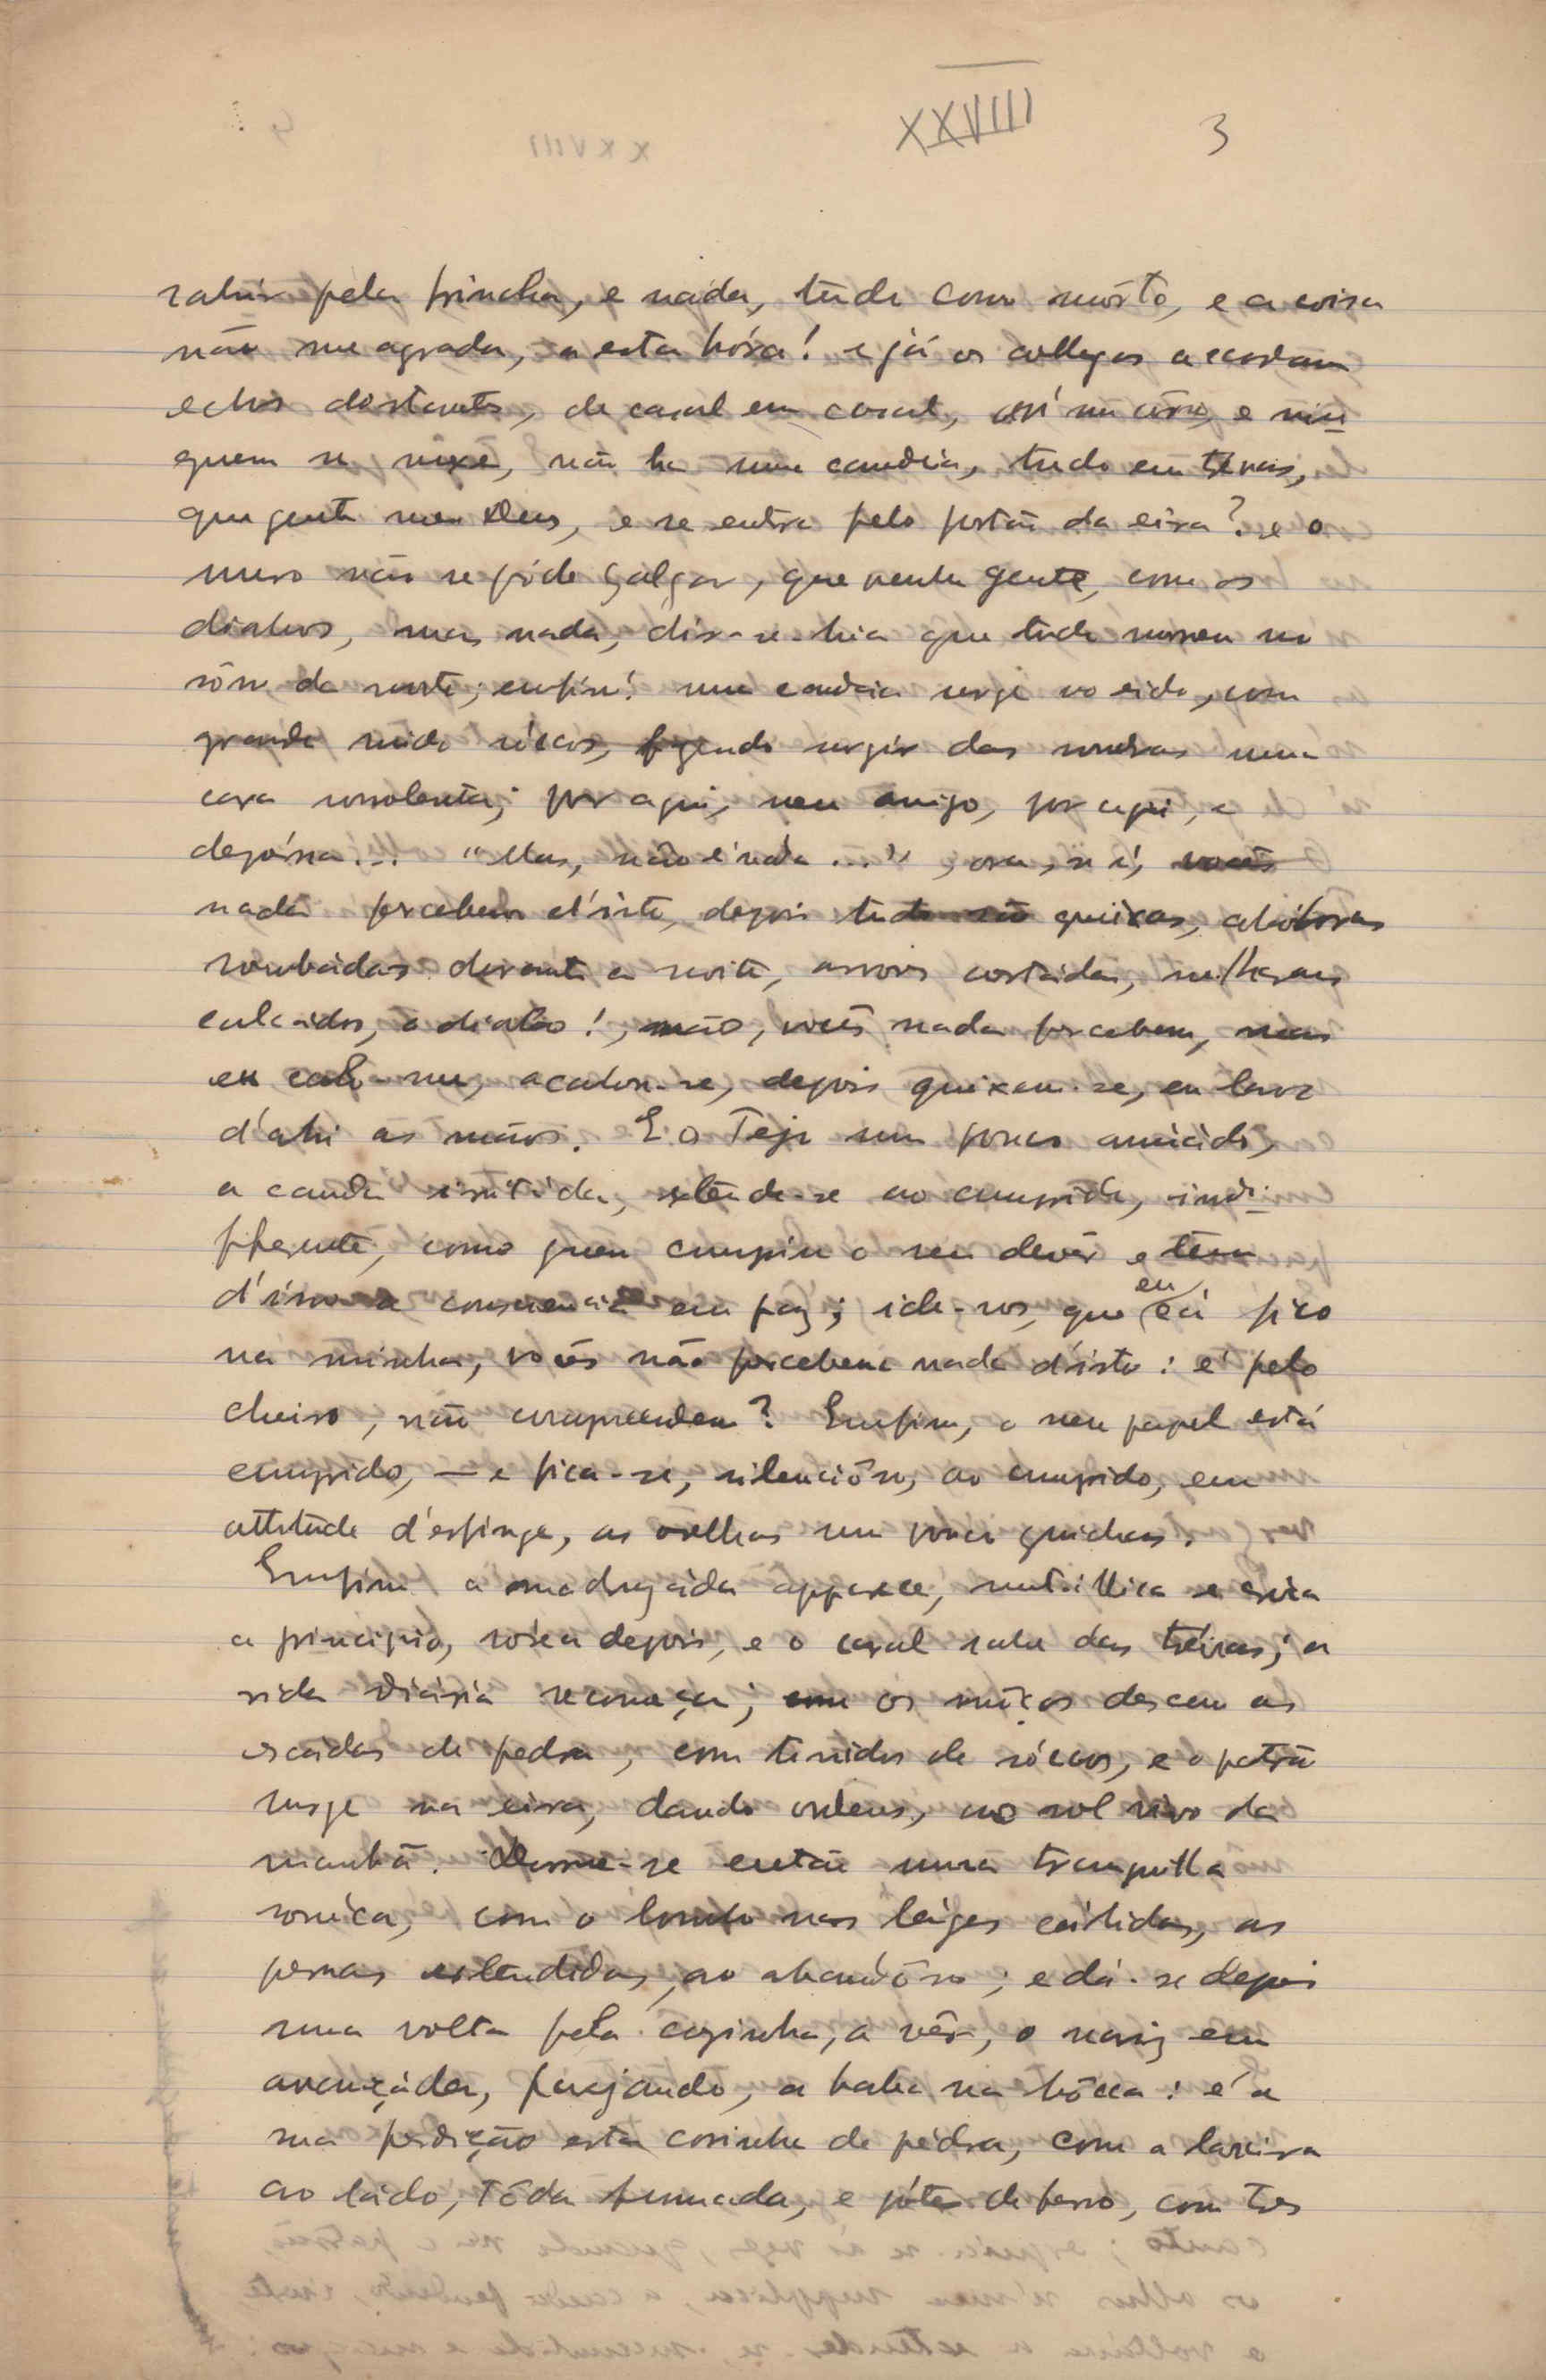 XXVIII 3
sahir pela frincha, e náda, tudo como mórto, e a coisa
não me agrada, a esta hóra! e já os collegas acordam
echos distantes, de casal em casal, e nin
guem se méxe, não ha uma candeia, tudo em trévas,
que gente meu Deus, e se entra pelo portão da eira? e o
muro não se póde galgar, que venha gente, com os
diabos, mas nada, dir-se-hia que tudo morreu no
sôno da morte; emfim! uma candeia surge no eido, com
grande ruido sóccos, fazendo surgir das sombras uma
cara somolenta; por aqui, meu amigo, por aqui, e
depréssa... "Mas, não é nada..." , ora, se é, vocês
nada percebem d'isto, depois tudo são queixas, abóboras
roubadas durante a noite, arvores cortadas, milharaes
calcados, o diabo!, não, vocês nada percebem, mas
eu calo-me, acabou-se, depois queixem-se, eu lavo
d'ahi as mãos. E o Tejo um pouco amuádo,
a cauda irritáda, estende-se ao comprido, indi-
fferente, como quem cumpriu o seu devêr e tem
d'isso a consciencia em paz; ide-vos, que eu cá fico
na minha, vocês não percebem nada d'isto: é pelo
cheiro, não comprendem? Emfim, o meu papel está
cumprido, — e fica-se, silenciôso, ao comprido, em
attitude d'esfinge, as orêlhas um pouco guichas.
Emfim a madrugáda apparece, metallica e
a principio, rósea depois, e o casal sahe das trévas; a
vida diária recomeça; os môços descem as
escádas de pedra, com tinidos de sóccos, e o patrão
surge na eira, dando ordens, ao sol vivo da
manhã. Dorme-se então uma tranquilla
sonéca, com o lombo nas láges cálidas, as
pernas estendidas, ao abandôno; e dá-se depois
uma volta pela cozinha, a vêr, o nariz em
avançáda, farejando, a baba na bôcca: é a
sua perdição esta cosinha de pédra, com a lareira
ao ládo, tôda fumada, e póte de ferro, com tres